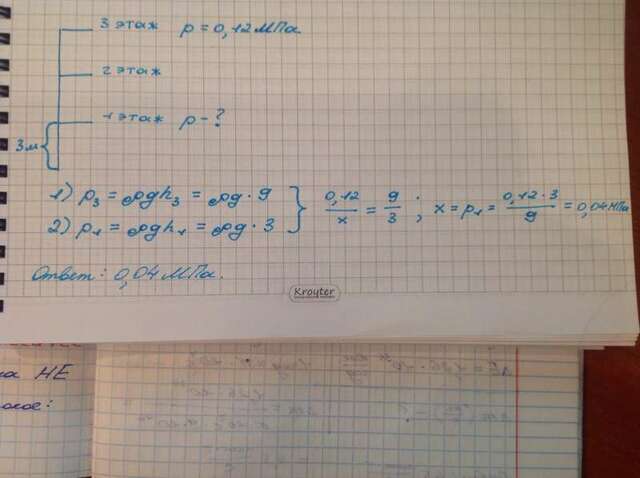 3 этаж p = 0,12 МПа
2 этаж
1 этаж p - ?
3м
1) p₃ = ρgh₃ = ρg · 9
2) p₁ = ρgh₁ = ρg · 3
0,12/x = 9/3 ; x = p₁ = 0,12 · 3/9 = 0,04 МПа
Ответ: 0,04 МПа.
Kroyter
НЕ